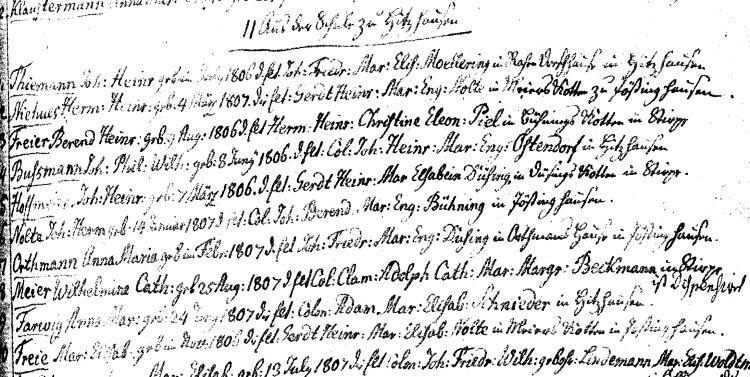 Klaustermann
11 Aus der Schule zu Hitzhausen
Thiemann Joh: Heinr geb im July 1806 d. sel. Joh: Friedr: Mar: Elis: Moehering in Hitzhausen
2 Niehues Herm: Heinr: geb. 4 März 1807. d. sel: Gerdt Heinr: Mar: Eng: Nolte in Meiers Kotten zu Jöstinghausen.
3 Freier Berend Heinr: geb. 9 Aug: 1806 d. sel Herm: Heinr: Christine Eleon: Piel in Bühnings Kotten in Stirpe
4 Bussmann Joh: Phil: Wilh: geb: 8 Juny 1806. d. sel: Col: Joh: Heinr: Mar: Eng: Ostendorf in Hitzhausen
5 Hoffmann Joh: Heinr: geb: 7 März 1806. d. sel: Gerdt Heinr: Mar Elsabein Dühsing in Dühsings Kotten in Stirpe.
6 Nolte Joh: Herm geb 14 Januar 1807 d sel: Col: Joh: Berend. Mar: Eng: Bühning in Jöstinghausen.
7 Orthmann Anna Maria geb im Febr: 1807 d. sel Joh: Friedr: Mar: Eng: Dühsing in Orthmans Hause in Jöstinghausen.
8 Meier Wilhelmine Cath: geb 25 Aug: 1807 d sel Col: Clam: Adolph Cath: Mar: Margr: Beckmann in Stirpe
ist dispensirt
Farwig Anna Mar: geb: 24 1807 d. sel: Colon: Adam. Mar: Elisab: Schnieder in Hitzhausen.
Freie Mar: Elisab: geb im Nov: 1806 d. sel: Gerdt Heinr: Mar: Elisab: Nolte in Meiers Kotten in Jöstinghausen.
Mar: Elisab: geb: 13 July 1807 d. sel Colon: Joh: Friedr: Wilh: gebohr: Lindemann Mar: Elis Woldtm